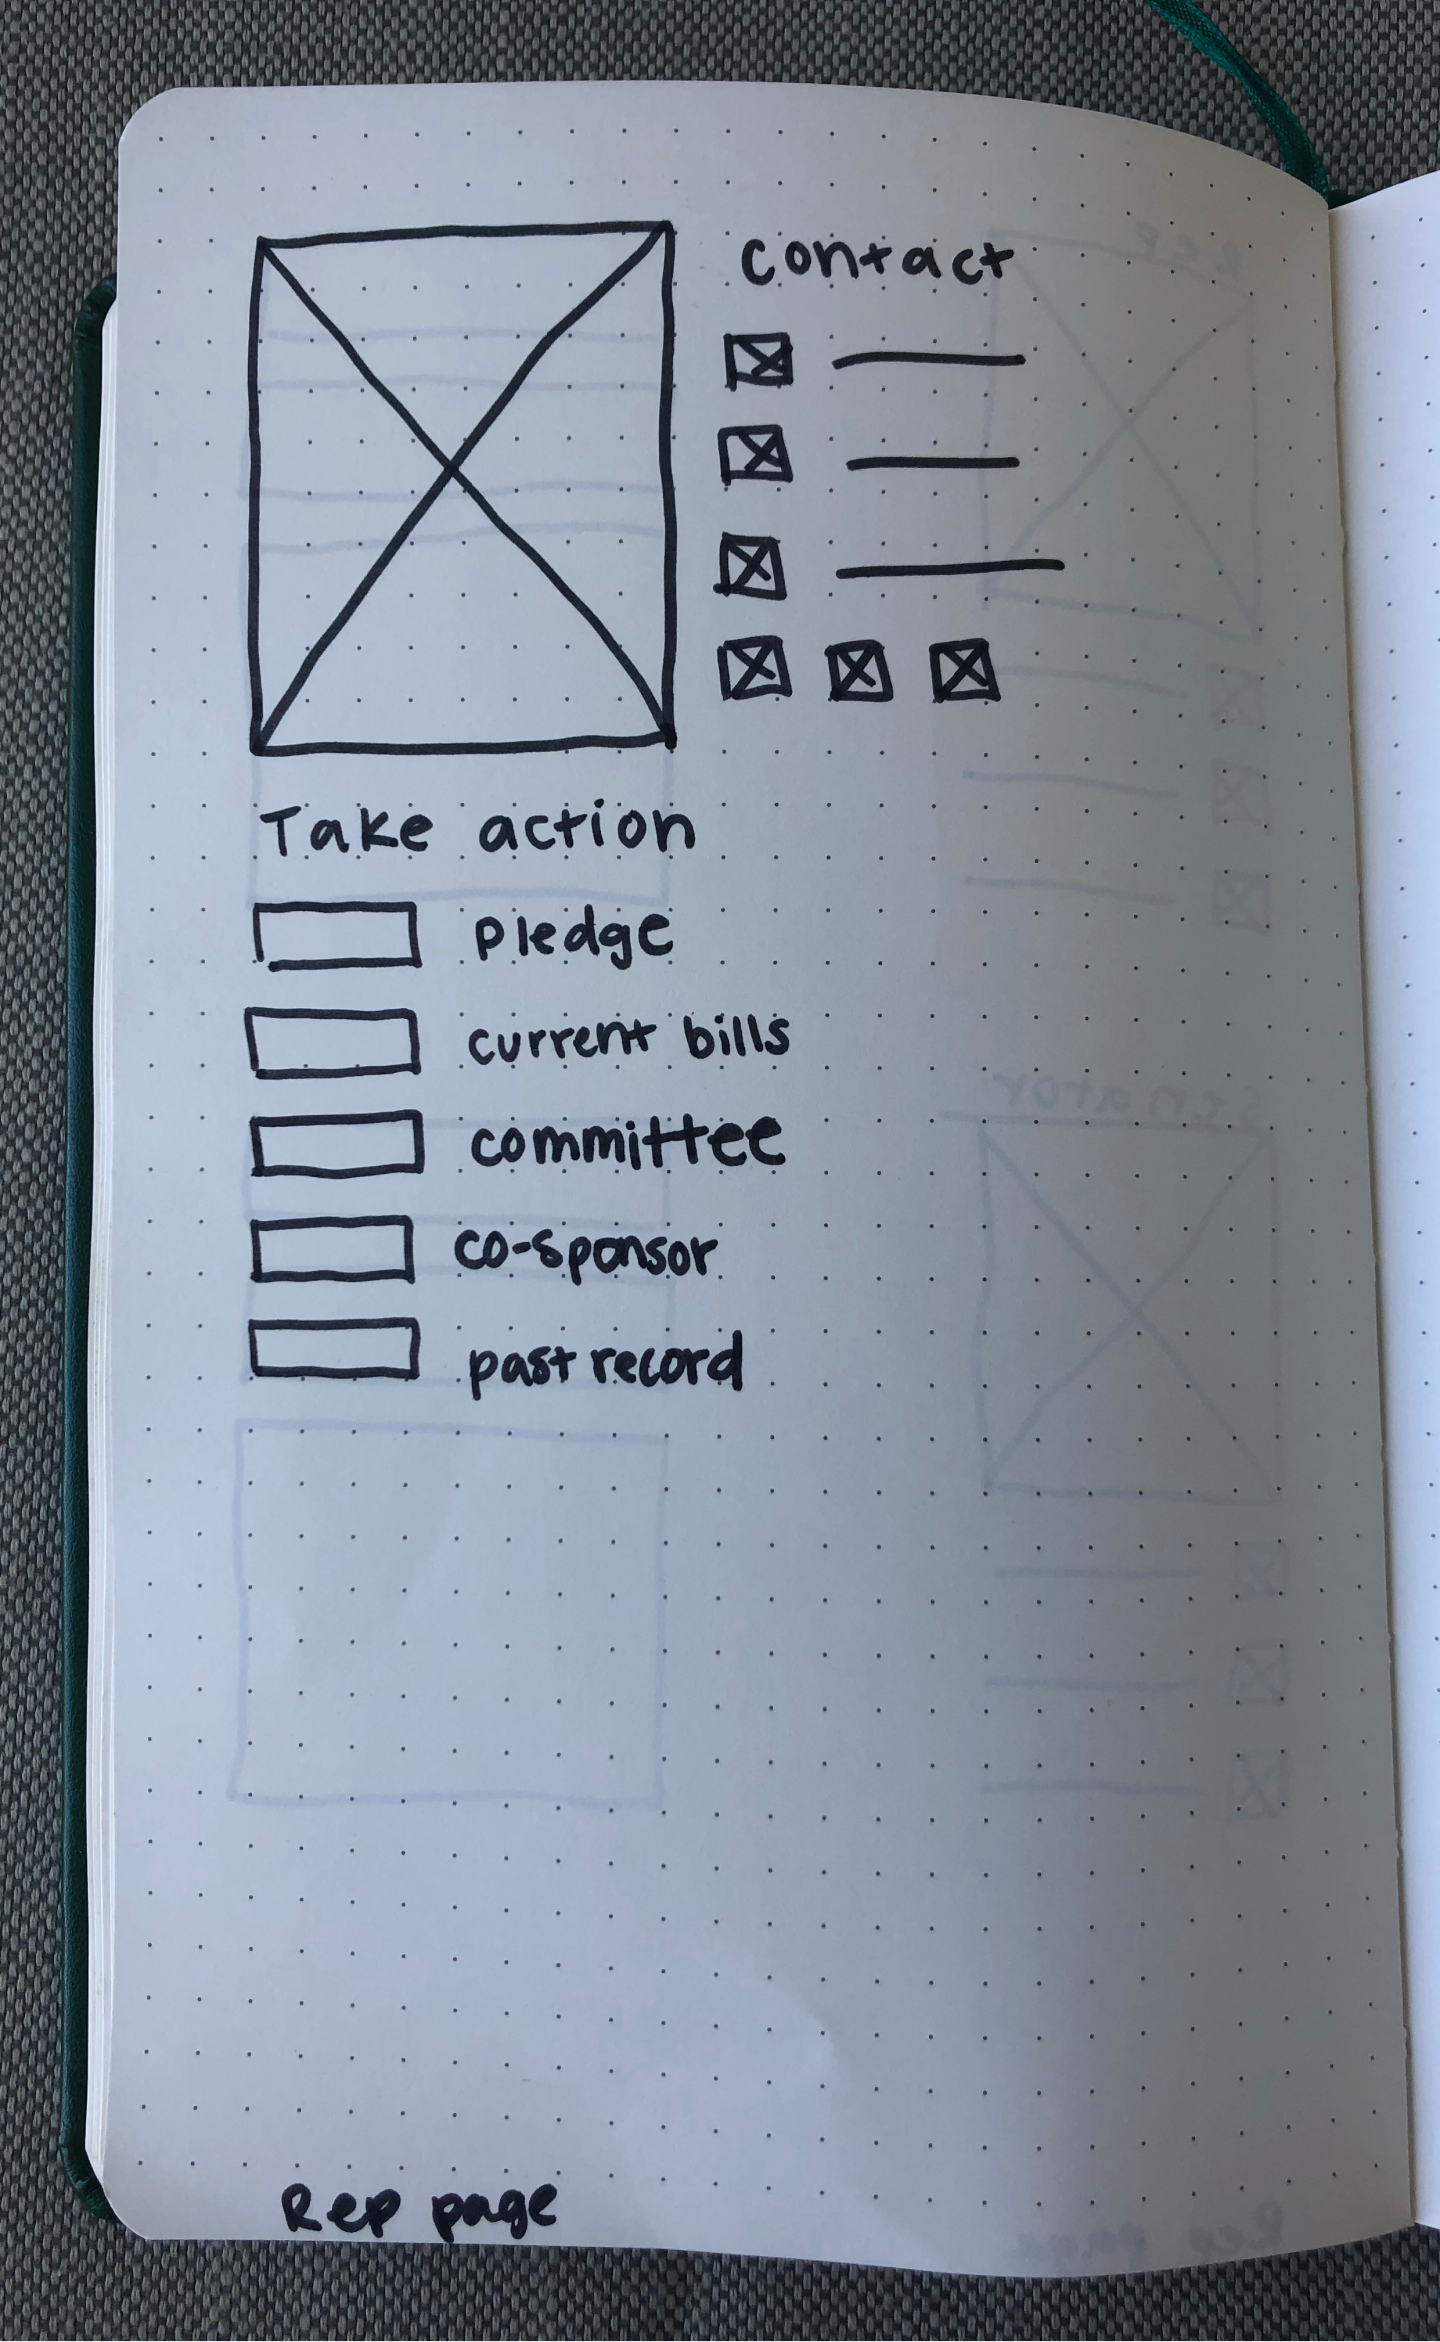 contact
Take action
pledge
current bills
committee
co-sponsor
past record
Rep page
Rep
Senator
Rep page